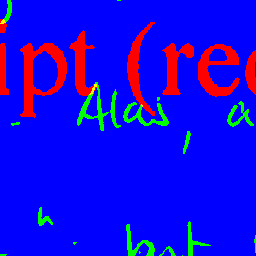 ipt (rec
Alas, a
h
but